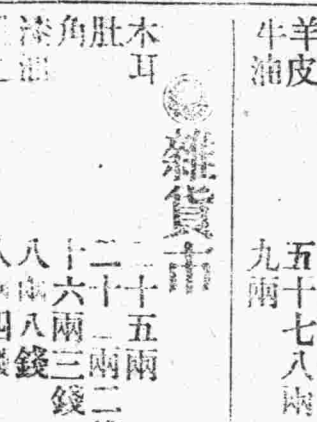 羊皮 五十七八兩
牛油 九兩
雜貨市
木耳 二十五兩
肚 二十 兩二
角 十六兩三錢
漆油 八兩八錢